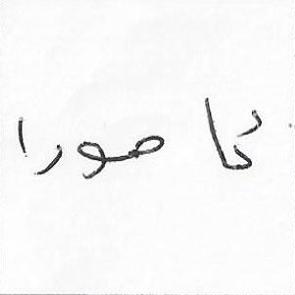 كا صورا